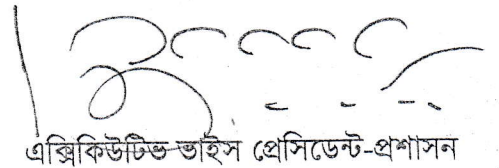 এক্সিকিউটিভ ভাইস প্রেসিডেন্ট-প্রশাসন